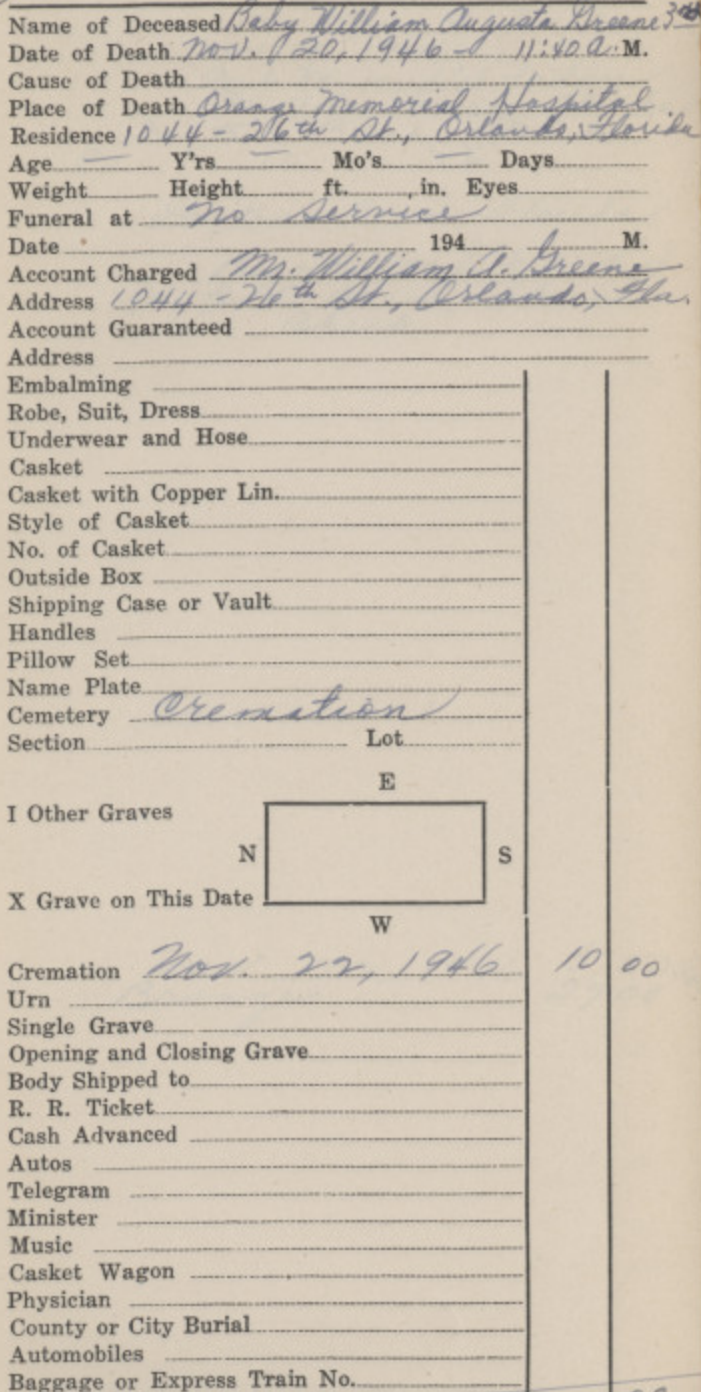 Name of Deceased Baby William Augusta Greene 3rd
Date of Death Nov. 20, 1946 - 11:40 A. M.
Cause of Death
Place of Death Orange Memorial Hospital
Residence 1044 - 26th St., Orlando, Florida
Age — Y'rs — Mo's — Days
Weight Height ft. in. Eyes
Funeral at No Service
Date 194 M.
Account Charged Mr. William A. Greene
Address 1044 - 26th St., Orlando, Fla.
Account Guaranteed
Address
Embalming
Robe, Suit, Dress
Underwear and Hose
Casket
Casket with Copper Lin.
Style of Casket
No. of Casket
Outside Box
Shipping Case or Vault
Handles
Pillow Set
Name Plate
Cemetery Cremation
Section Lot
E
I Other Graves
N S
X Grave on This Date
W
Cremation Nov. 22, 1946 10 00
Urn
Single Grave
Opening and Closing Grave
Body Shipped to
R. R. Ticket
Cash Advanced
Autos
Telegram
Minister
Music
Casket Wagon
Physician
County or City Burial
Automobiles
Baggage or Express Train No.